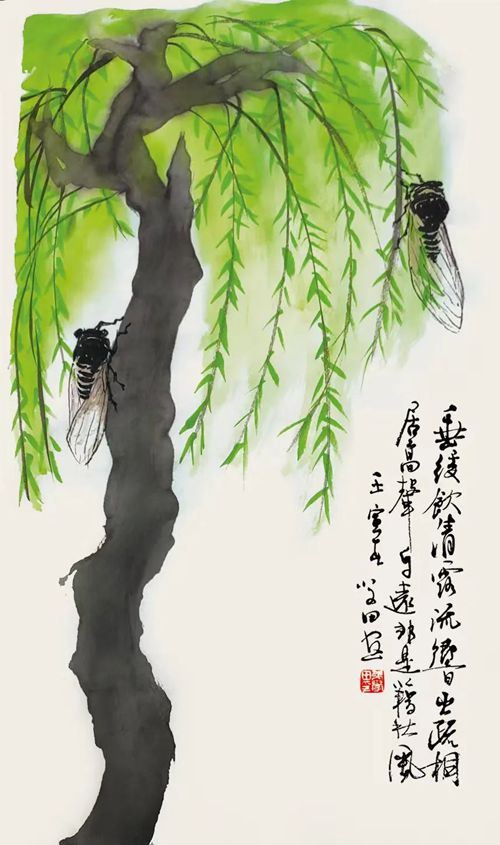 垂緌飲清露流響出疏桐
居高聲自遠非是藉秋風
壬寅田画